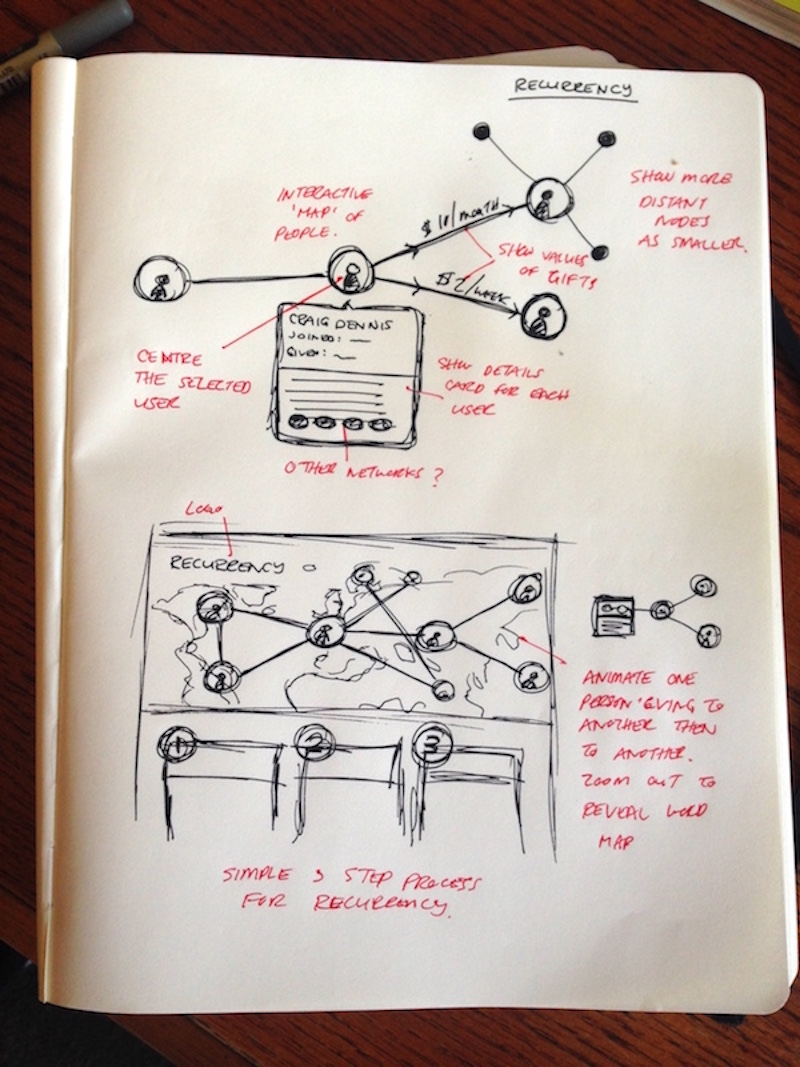 RECURRENCY
INTERACTIVE
'MAP' OF
PEOPLE.
SHOW MORE
DISTANT
NODES
AS SMALLER.
$10/MONTH
SHOW VALUES
OF GIFTS
$2/WEEK
CRAIG DENNIS
JOINED:
GIVEN:
CENTRE
THE SELECTED
USER
SHOW DETAILS
CARD FOR EACH
USER
OTHER NETWORKS?
LOGO
RECURRENCY
ANIMATE ONE
PERSON GIVING TO
ANOTHER THEN
TO ANOTHER.
ZOOM OUT TO
REVEAL WORD
MAP
1
2
3
SIMPLE 3 STEP PROCESS
FOR RECURRENCY.